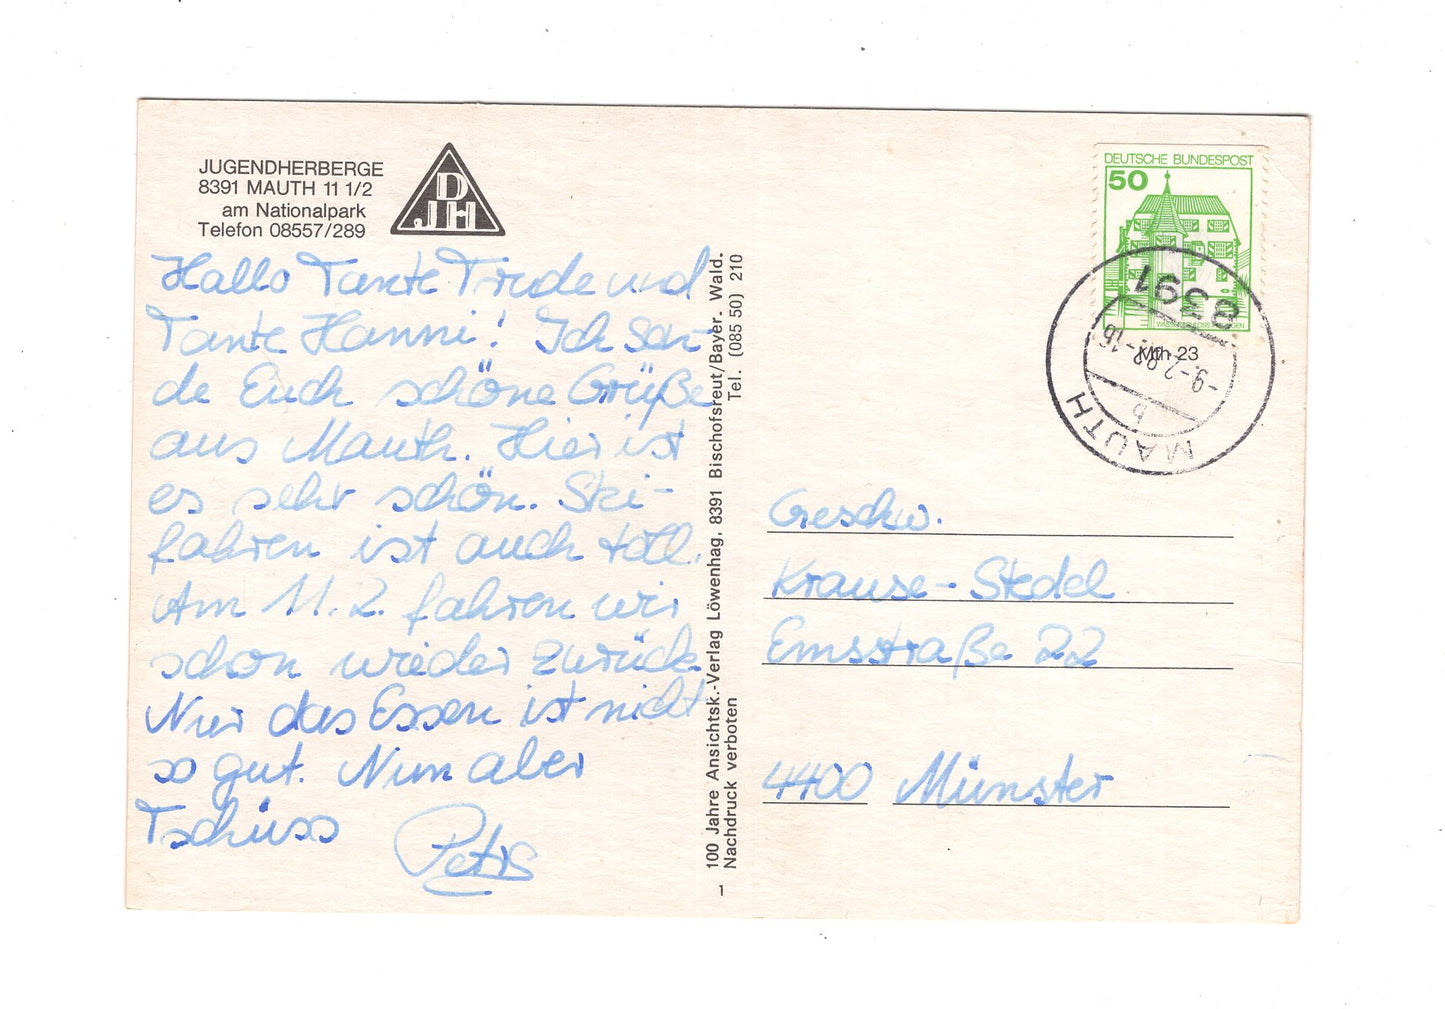 JUGENDHERBERGE
8391 MAUTH 11 1/2
am Nationalpark
Telefon 08557/289
DJH
Hallo Tante Trude und
Tante Hanni! Ich sen-
de Euch schöne Grüße
aus Mauth. Hier ist
es sehr schön. Ski-
fahren ist auch toll.
Am 11.2. fahren wir
schon wieder zurück
Nur das Essen ist nicht
so gut. Nun aber
Tschüss
100 Jahre Ansichtsk.-Verlag Löwenhag, 8391 Bischofsreut/Bayer. Wald.
Nachdruck verboten
Tel. (085 50) 210
1
DEUTSCHE BUNDESPOST
50
WASSERSCHLOSS
8391
Mth 23
b
MAUTH
Geschw.
Krause-Stedel
Emsstraße 22
4400 Münster